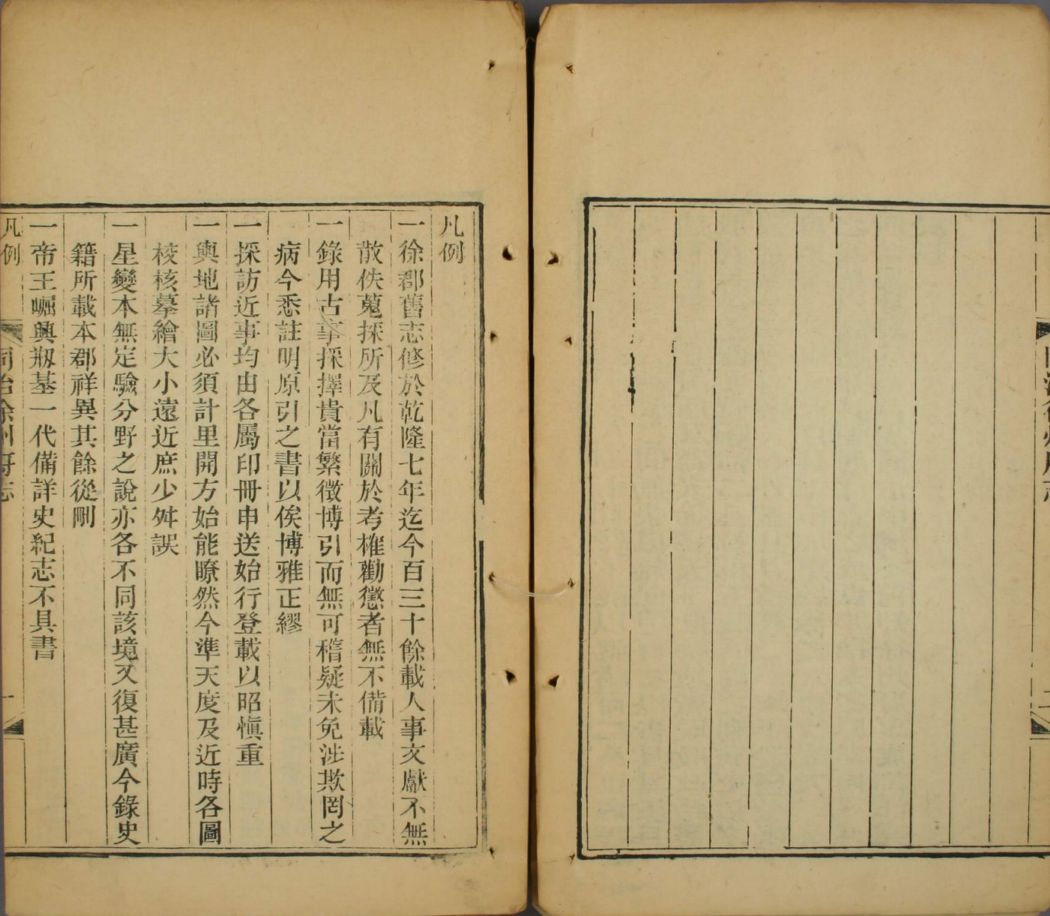 凡例
一徐郡舊志修於乾隆七年迄今百三十餘載人事文獻不無
散佚蒐採所及凡有關於考榷勸懲者無不備載
一錄用古事採擇貴當繁徵博引而無可稽疑未免涉欺罔之
病今悉註明原引之書以俟博雅正繆
一採訪近事均由各屬印冊申送始行登載以昭愼重
一輿地諸圖必須計里開方始能瞭然今準天度及近時各圖
校核摹繪大小遠近庶少舛誤
一星變本無定驗分野之說亦各不同該境又復甚廣今錄史
籍所載本郡祥異其餘從刪
一帝王崛興剏基一代備詳史紀志不具書
凡例
同治徐州府志
一